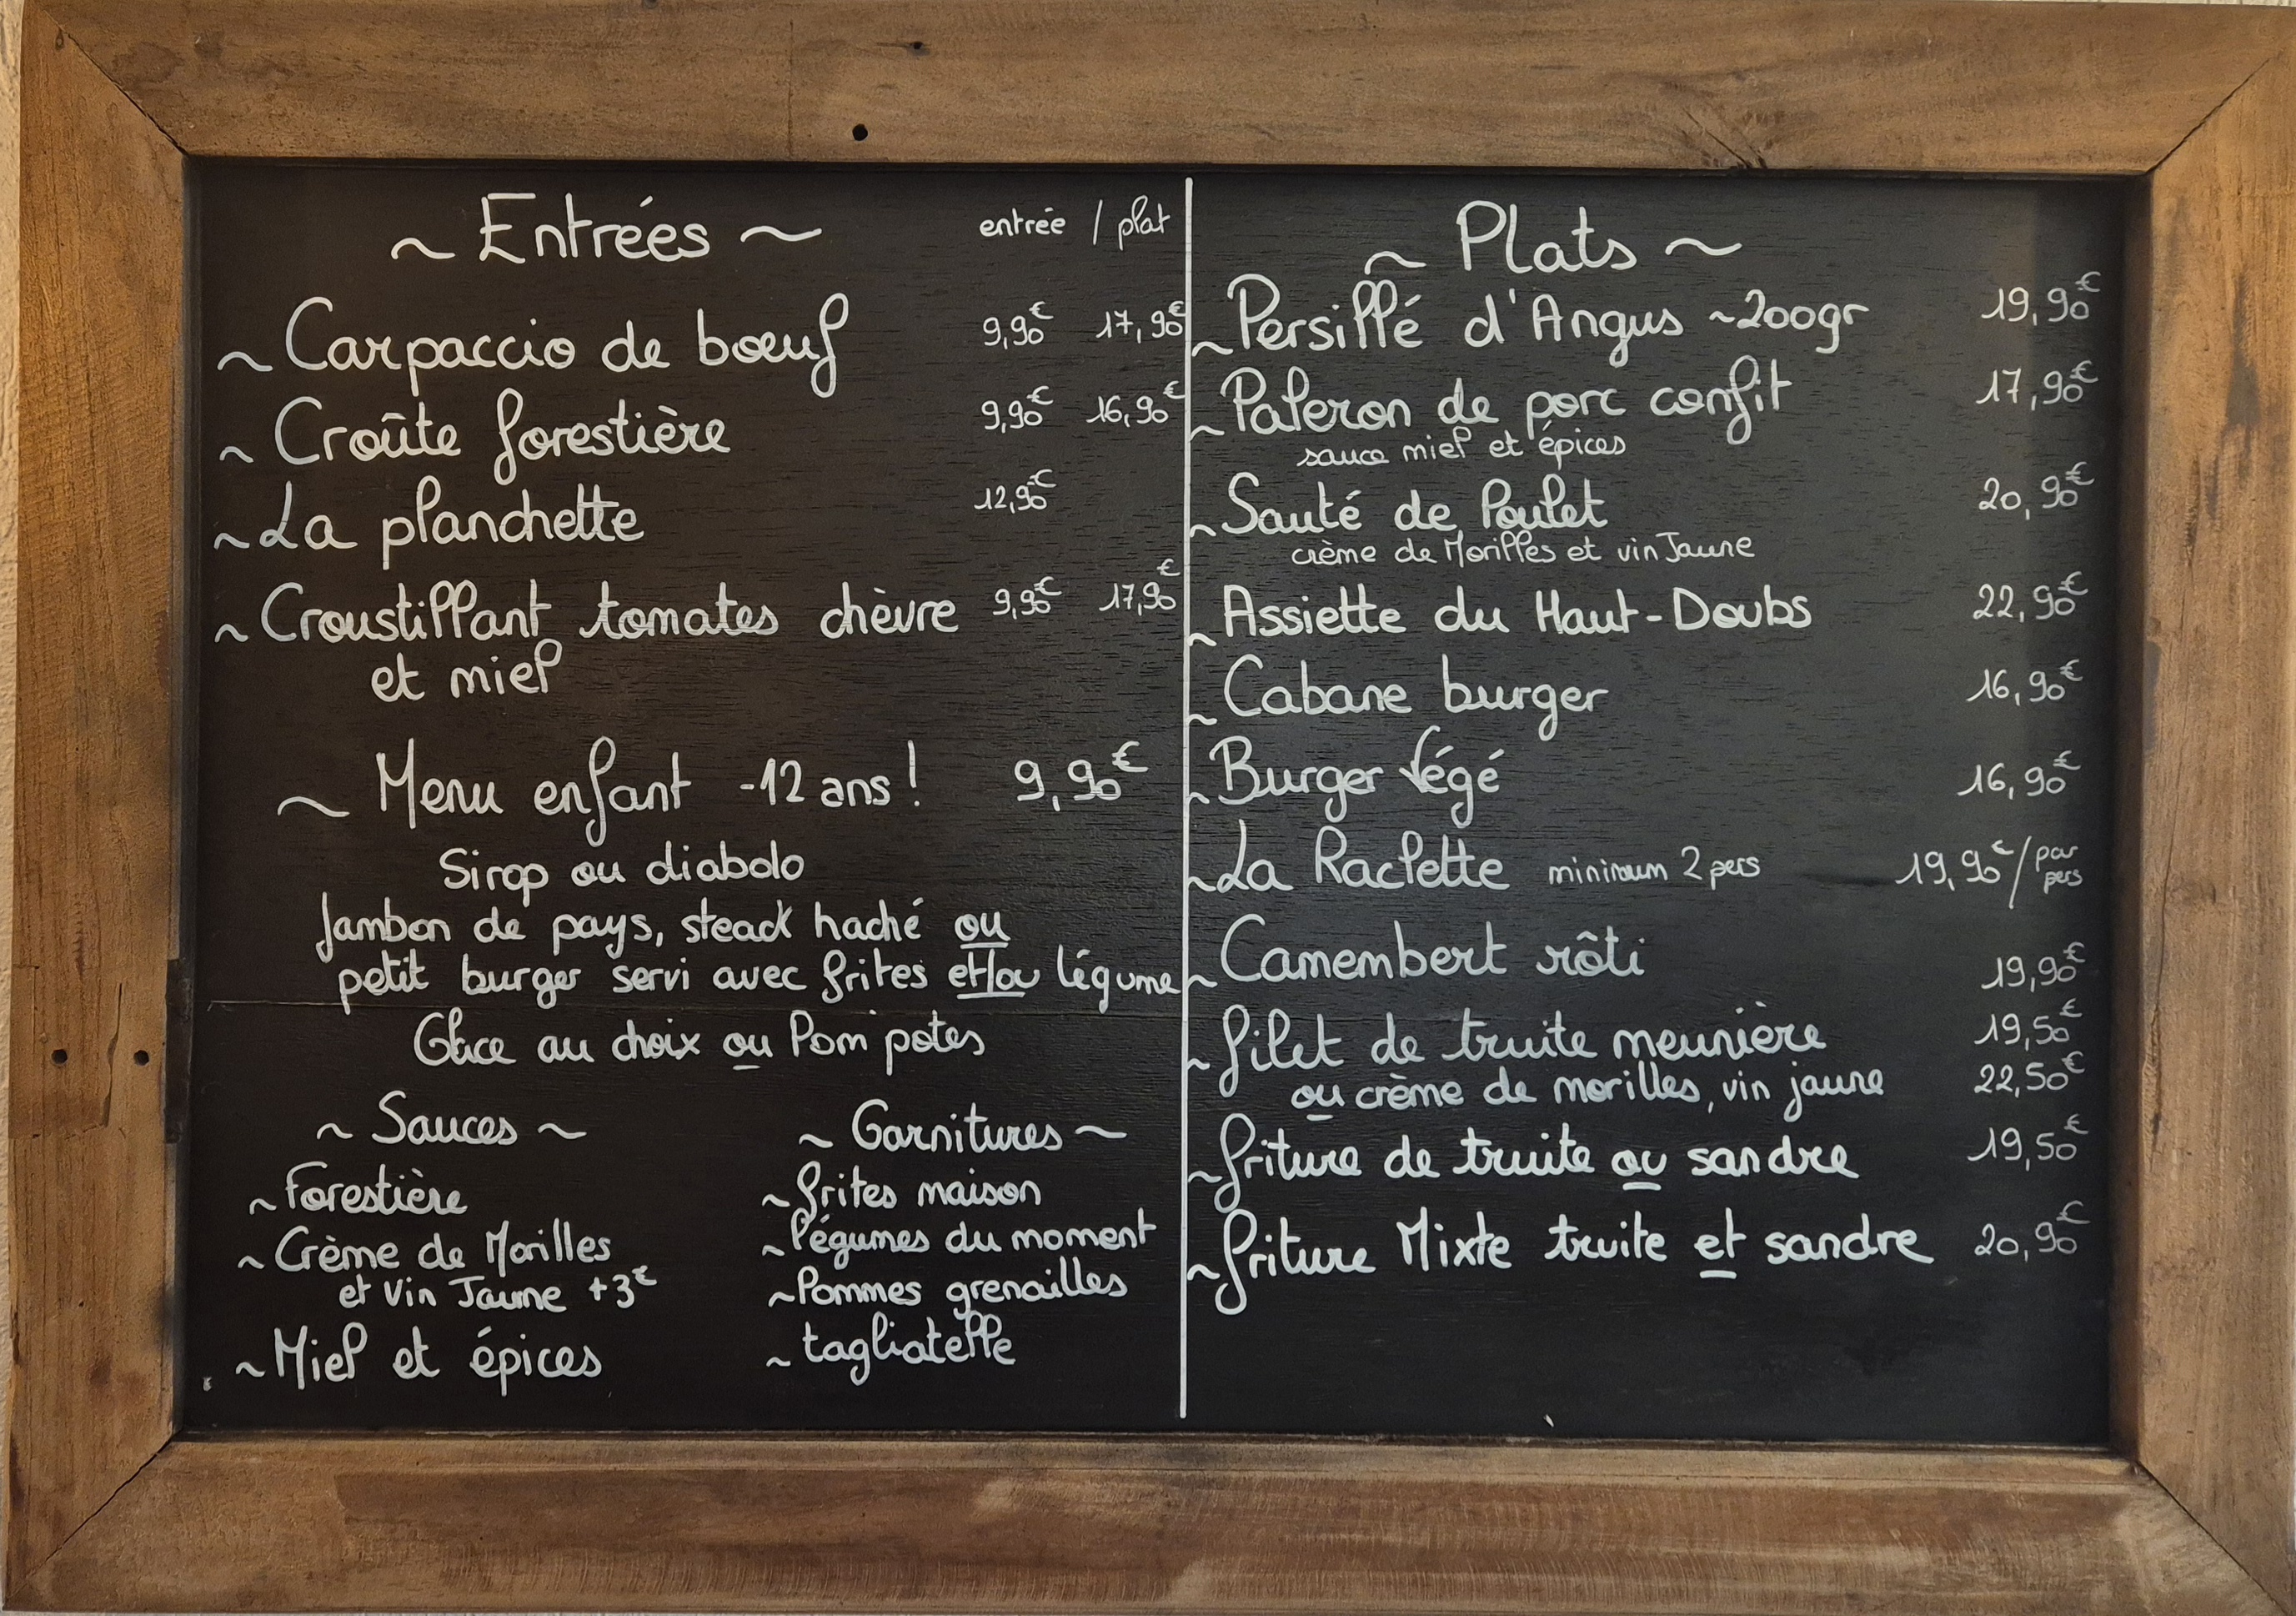 ~ Entrées ~ entrée / plat
~ Carpaccio de bœuf 9,90€ 17,90€
~ Croûte forestière 9,90€ 16,90€
~ La planchette 12,90€
~ Croustillant tomates chèvre 9,90€ 17,90€
et miel
~ Menu enfant -12 ans ! 9,90€
Sirop ou diabolo
Jambon de pays, steack haché ou
petit burger servi avec frites et/ou légume
Glace au choix ou Pom'potes
~ Sauces ~
~ Forestière
~ Crème de Morilles
et Vin Jaune +3€
~ Miel et épices
~ Garnitures ~
~ frites maison
~ légumes du moment
~ Pommes grenailles
~ tagliatelle
~ Plats ~
~ Persillé d'Angus ~200gr 19,90€
~ Paleron de porc confit 17,90€
sauce miel et épices
~ Sauté de Poulet 20,90€
crème de Morilles et vin Jaune
~ Assiette du Haut-Doubs 22,90€
~ Cabane burger 16,90€
~ Burger Végé 16,90€
~ La Raclette minimum 2 pers 19,90€/par pers
~ Camembert rôti 19,90€
~ filet de truite meunière 19,50€
ou crème de morilles, vin jaune 22,50€
~ friture de truite ou sandre 19,50€
~ friture Mixte truite et sandre 20,90€